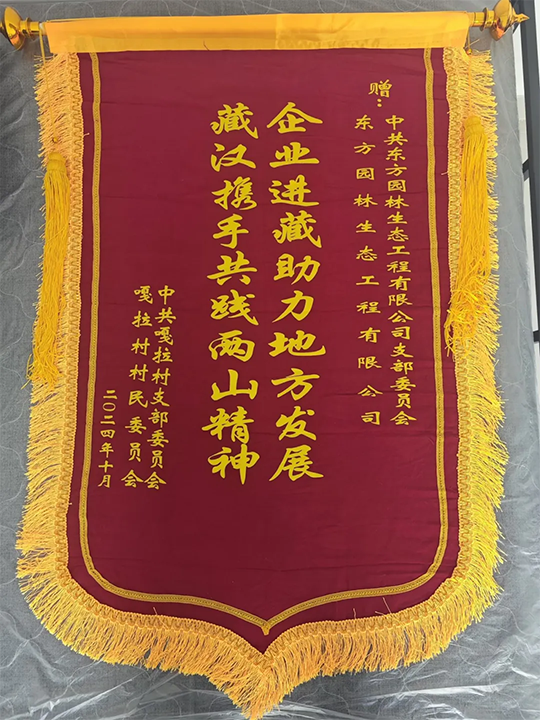 赠：
中共东方园林生态工程有限公司支部委员会
东方园林生态工程有限公司
企业进藏助力地方发展
藏汉携手共践两山精神
中共嘎拉村支部委员会
嘎拉村村民委员会
二〇二四年十月